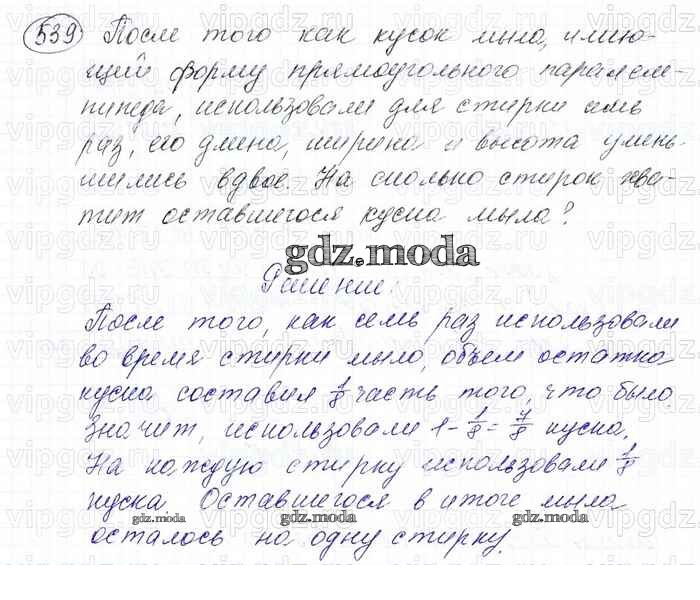 539 После того как кусок мыла, имею-
щий форму прямоугольного параллеле-
пипеда, использовали для стирки семь
раз, его длина, ширина и высота умень-
шились вдвое. На сколько стирок хва-
тит оставшегося куска мыла?
gdz.moda
Решение.
После того, как семь раз использовали
во время стирки мыло, объем остатка
куска составил 1/8 часть того, что было.
Значит, использовали 1-1/8=7/8 куска.
На каждую стирку использовали 1/8
куска. Оставшегося в итоге мыла
gdz.moda gdz.moda gdz.moda
осталось на одну стирку.